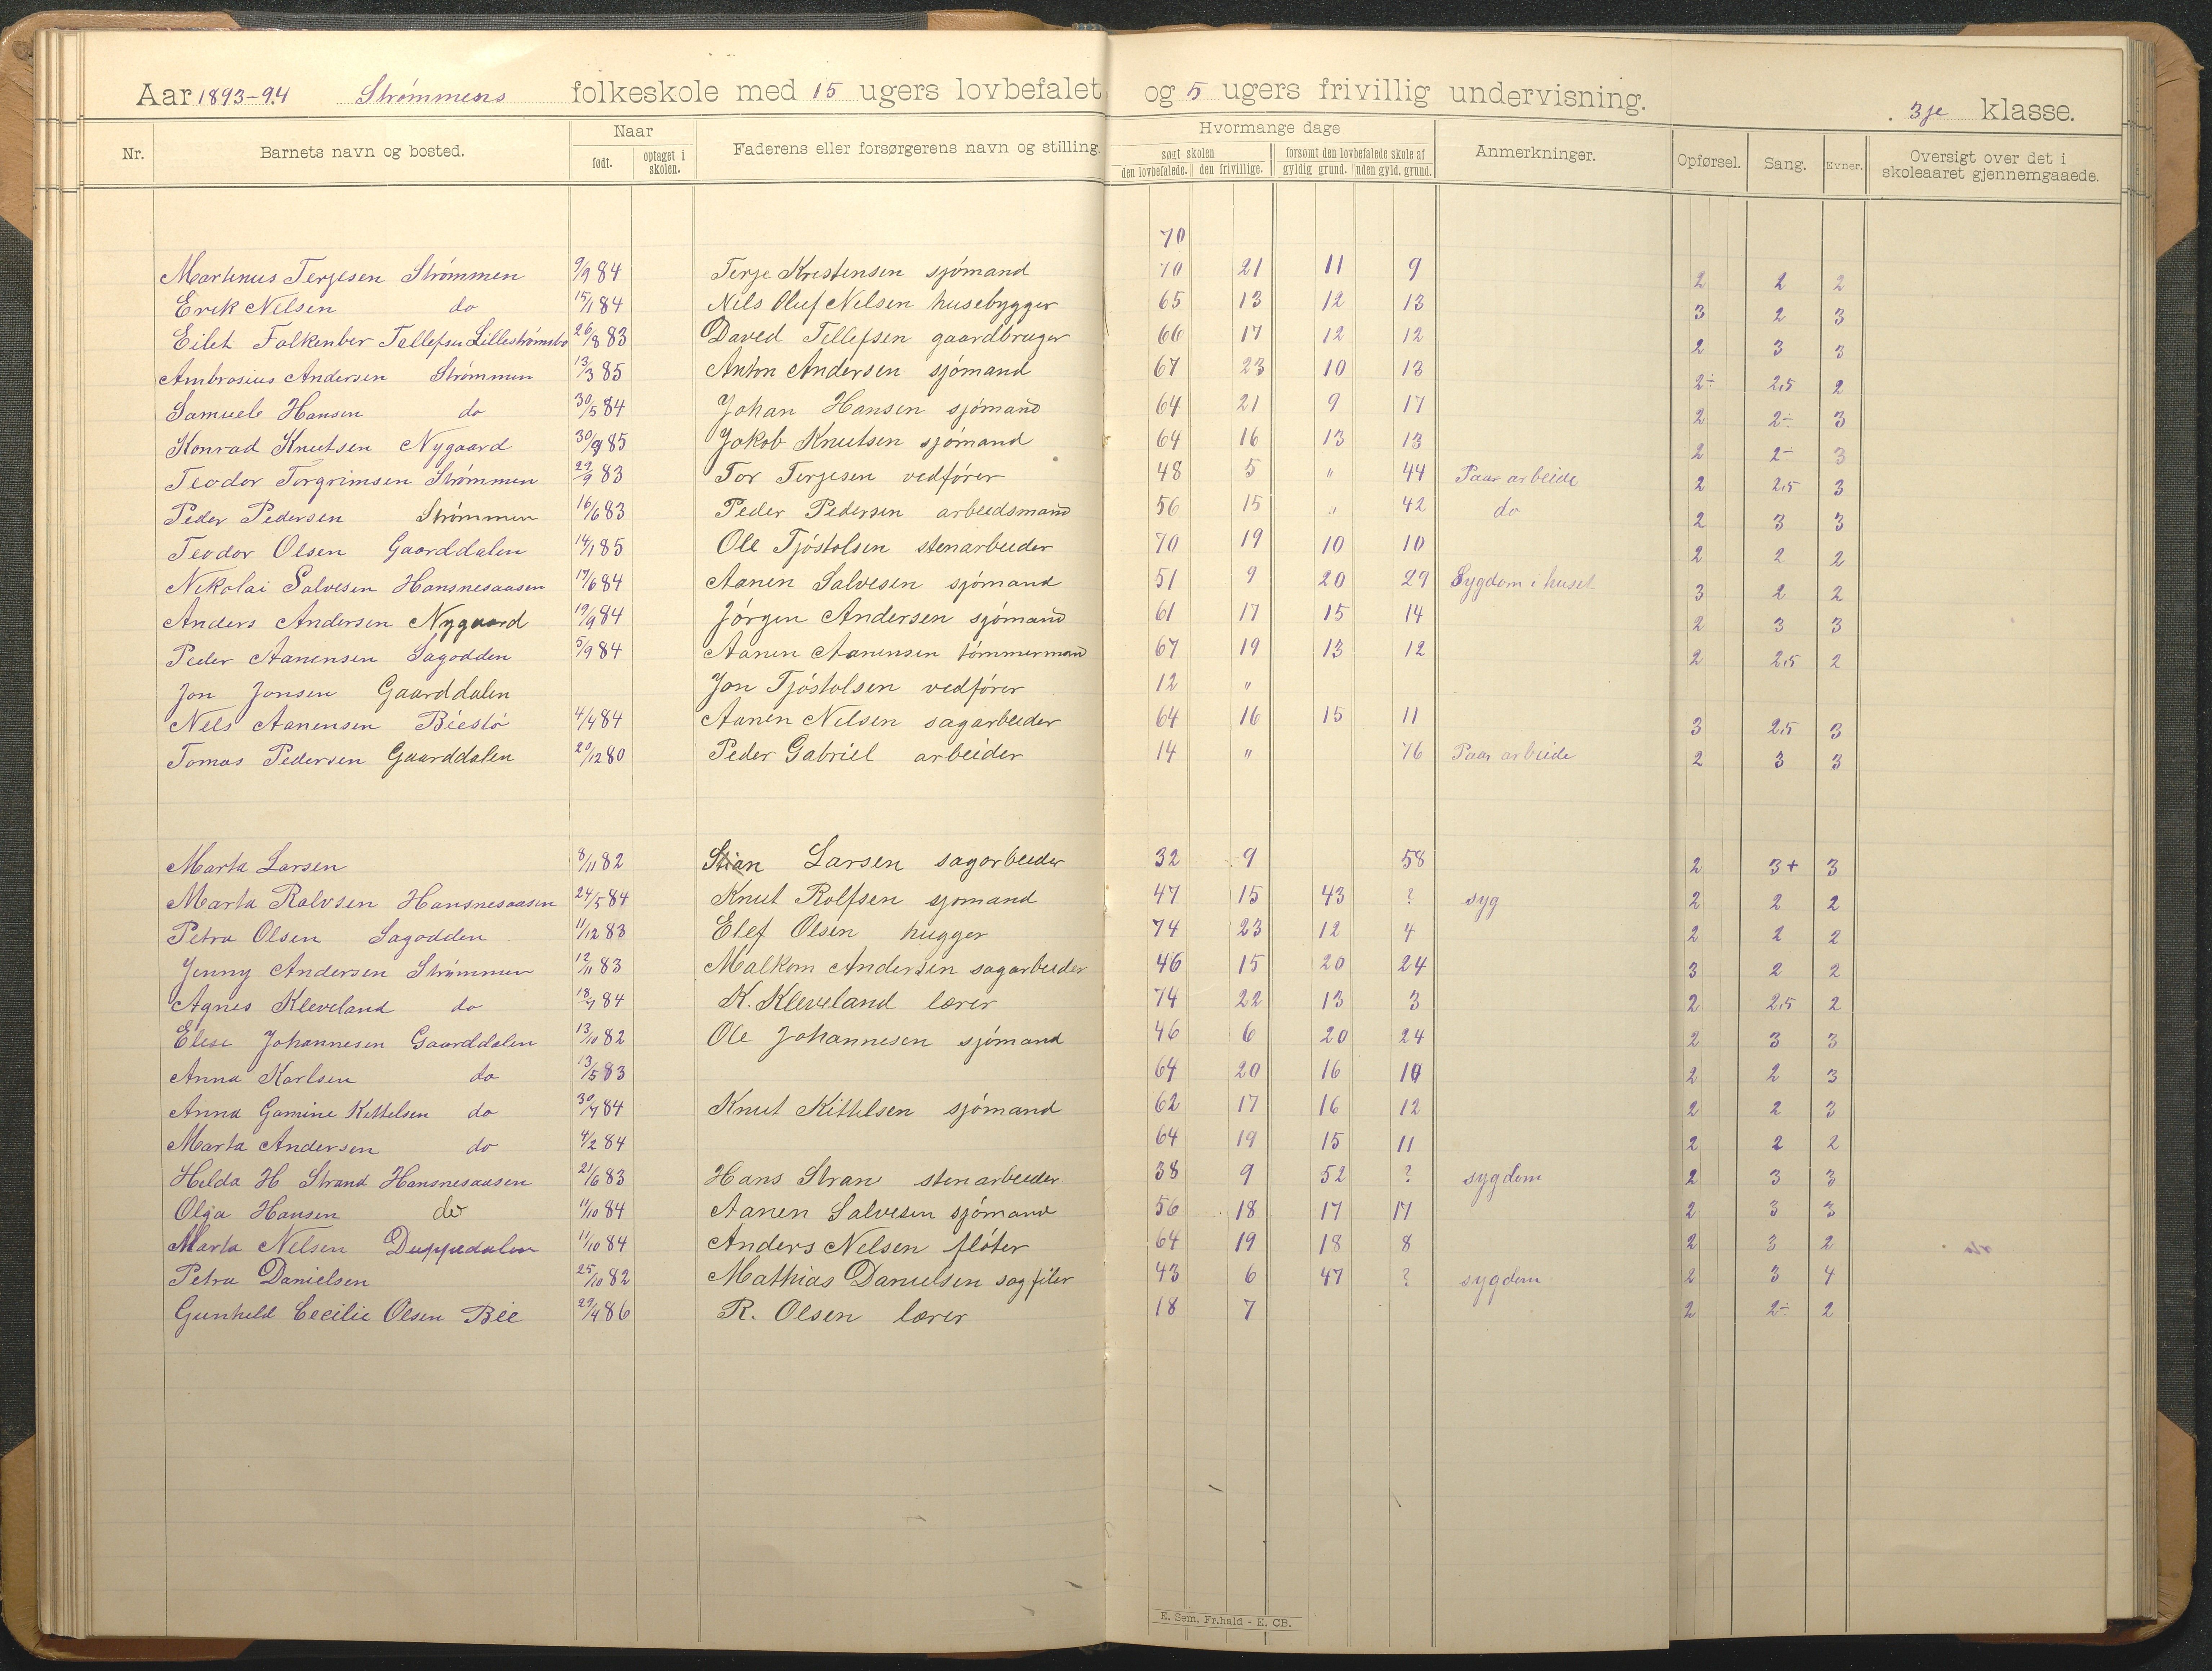 Aar 1893-94 Strømmens folkeskole med 15 ugers lovbefalet og 5 ugers frivillig undervisning. 3je klasse.
Nr. Barnets navn og bosted. Naar født. optaget i skolen. Faderens eller forsørgerens navn og stilling. Hvormange dage søgt skolen den lovbefalede. den frivillige. forsømt den lovbefalede skole af gyldig grund. uden gyld. grund. Anmerkninger. Opførsel. Sang. Evner. Oversigt over det i skoleaaret gjennemgaaede.
70
Martinus Terjesen Strømmen 9/9 84 Terje Kristensen sjömand 70 21 11 9 2 2 2
Erik Nilsen do 15/1 84 Nils Oluf Nilsen husebygger 65 13 12 13 3 2 3
Eilet Falkenber Tellefsen Lillestrømsbo 26/8 83 David Tellefsen gaardbruger 66 17 12 12 2 3 3
Ambrosius Andersen Strømmen 13/3 85 Anton Andersen sjömand 67 23 10 13 2÷ 2,5 2
Samuele Hansen do 30/5 84 Johan Hansen sjömand 64 21 9 17 2 2÷ 3
Konrad Knutsen Nygaard 30/9 85 Jakob Knutsen sjömand 64 16 13 13 2 2÷ 3
Teodor Torgrimsen Strømmen 29/9 83 Tor Terjesen vedförer 48 5 " 44 Paa arbeide 2 2,5 3
Peder Pedersen Strømmen 16/6 83 Peder Pedersen arbeidsmand 56 15 " 42 do 2 3 3
Teodor Olsen Gaarddalen 14/1 85 Ole Tjöstolsen stenarbeider 70 19 10 10 2 2 2
Nikolai Salvesen Hansnesaasen 17/6 84 Aanen Salvesen sjömand 51 9 20 29 Sygdom i huset 3 2 2
Anders Andersen Nygaard 19/9 84 Jörgen Andersen sjömand 61 17 15 14 2 3 3
Peder Aanensen Sagodden 5/9 84 Aanen Aanensen tömmermand 67 19 13 12 2 2,5 2
Jon Jonsen Gaarddalen Jon Tjöstolsen vedförer 12 "
Nils Aanensen Biestö 4/4 84 Aanen Nilsen sagarbeider 64 16 15 11 3 2,5 3
Tomas Pedersen Gaarddalen 20/12 80 Peder Gabriel arbeider 14 " 76 Paa arbeide 2 3 3
Marta Larsen 8/11 82 Stian Larsen sagarbeider 32 9 58 2 3+ 3
Marta Rolvsen Hansnesaasen 24/5 84 Knut Rolfsen sjömand 47 15 43 ? syg 2 2 2
Petra Olsen Sagodden 11/12 83 Elef Olsen hugger 74 23 12 4 2 2 2
Jenny Andersen Strømmen 12/11 83 Malkom Andersen sagarbeider 46 15 20 24 3 2 2
Agnes Kleveland do 18/7 84 K. Kleveland lærer 74 22 13 3 2 2,5 2
Elise Johannesen Gaarddalen 13/10 82 Ole Johannesen sjömand 46 6 20 24 2 3 3
Anna Karlsen do 13/5 83 64 20 16 10 2 2 3
Anna Gamine Kittelsen do 30/7 84 Knut Kittelsen sjömand 62 17 16 12 2 2 3
Marta Andersen do 4/2 84 64 19 15 11 2 2 2
Hilda H Strand Hansnesaasen 21/6 83 Hans Stran stenarbeider 38 9 52 ? sygdom 2 3 3
Olga Hansen do 11/10 84 Aanen Salvesen sjömand 56 18 17 17 2 3 3
Marta Nilsen Duppedalen 11/10 84 Anders Nilsen flöter 64 19 18 8 2 3 2
Petra Danielsen 25/10 82 Mathias Danielsen sagfiler 43 6 47 ? sygdom 2 3 4
Gunhild Cecilie Olsen Bie 29/4 86 R. Olsen lærer 18 7 2 2÷ 2
E. Sem, Fr.hald - E. CB.